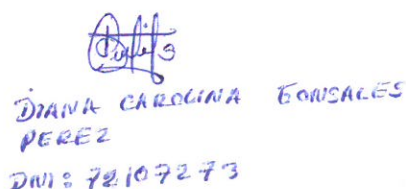 DIANA CAROLINA GONSALES
PEREZ
DNI: 72107273